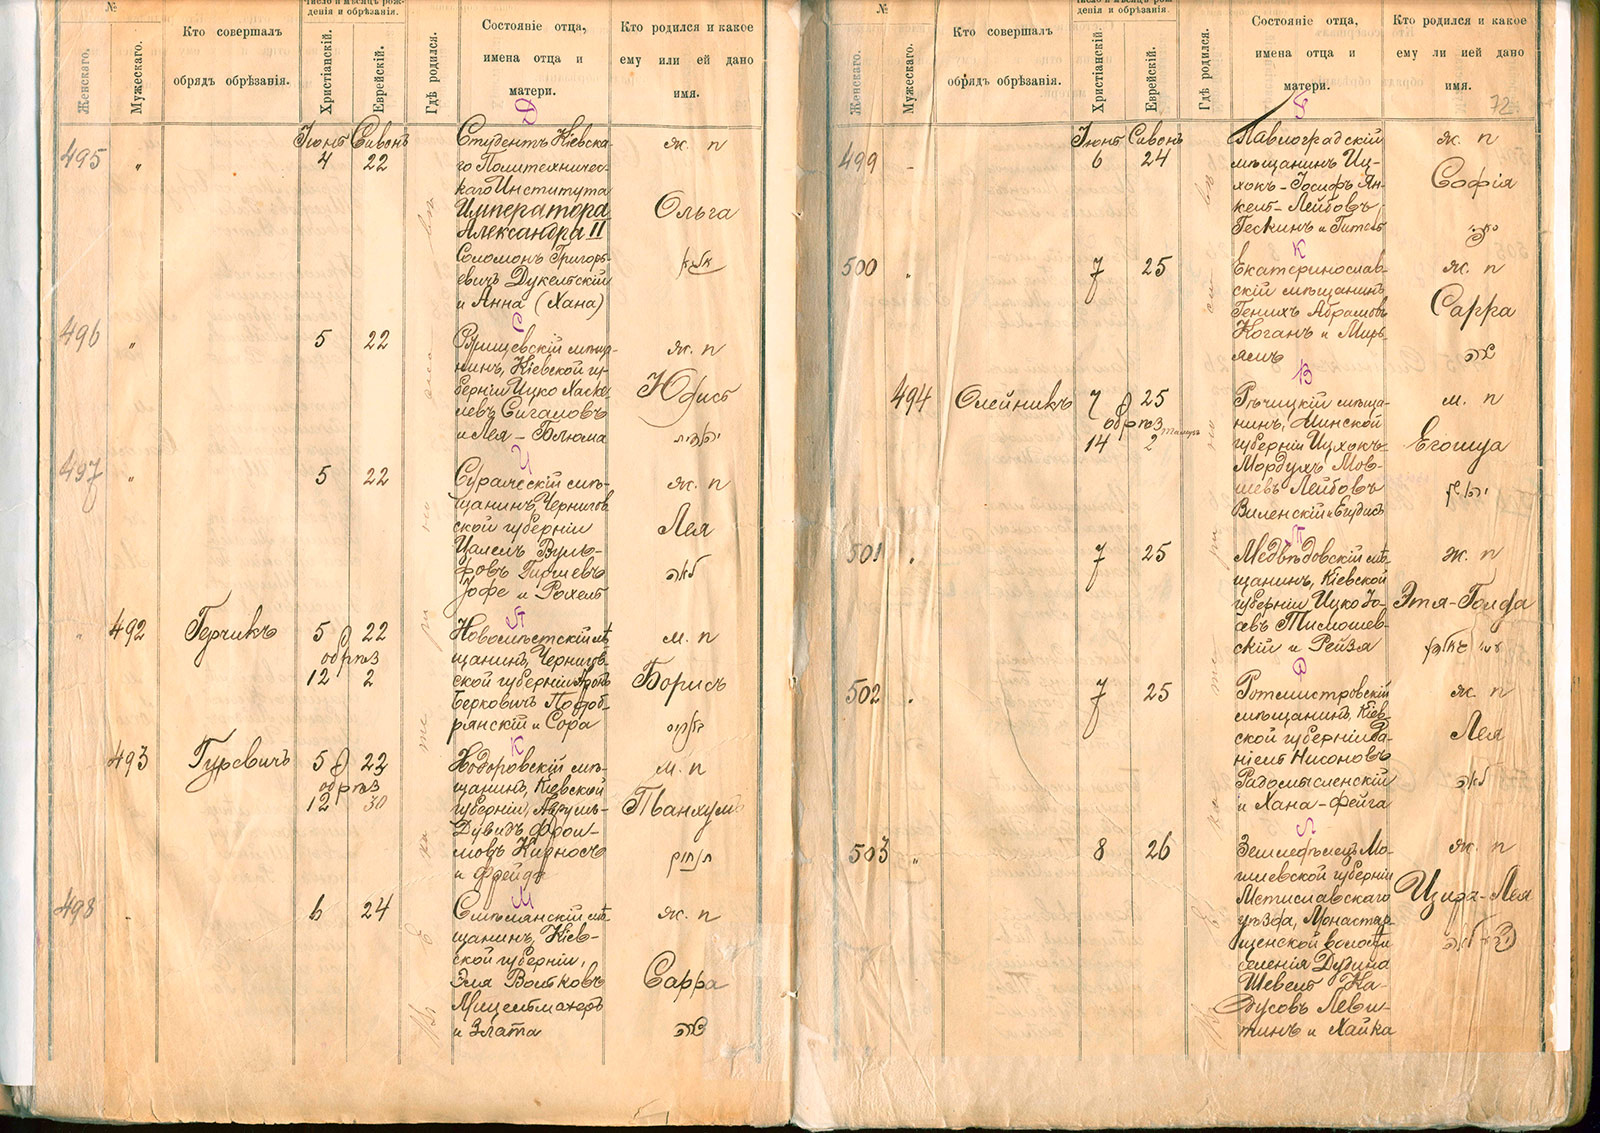 №
Число и мѣсяцъ рож-
денія и обрѣзанія.
Женскаго.
Мужескаго.
Кто совершалъ
обрядъ обрѣзанія.
Христіанскій.
Еврейскій.
Гдѣ родился.
Состояніе отца,
имена отца и
матери.
Кто родился и какое
ему или ей дано
имя.
Іюнь Сивонъ
495 " 4 22
Студентъ Кіевска-
го Политехничес-
каго Института
Императора
Александра II
Соломонъ Григорь-
евичъ Дукельскій
и Анна (Хана)
ж. п
Ольга
496 " 5 22
нинъ, Кіевской гу-
берніи Ицко Хаске-
левъ Сигаловъ
и Лея-Блюма
ж. п
Юдись
יהודית
497 " 5 22
Суражскій мѣ-
щанинъ, Чернигов
ской губерніи
Вуль-
фовъ Гиршевъ
Іофе и Рохель
ж. п
Лея
לאה
492 Герчикъ 5 22
обрѣз
12 2
Новомѣстскій мѣ
щанинъ, Чернигов-
ской губерніи Аронъ
Берковичъ Подоб-
рянскій и Сора
м. п
Борисъ
493 Гуревичъ 5 22
обрѣз
12 30
Ходоровскій мѣ-
щанинъ, Кіевской
губерніи, Аврумъ-
Дувидъ Фрои-
мовъ
и Фрейда
м. п
תנחום
498 6 24
Смѣлянскій мѣ
щанинъ, Кіев-
ской губерніи,
Эля Волковъ
Мицельмахеръ
и Злата
ж. п
Сарра
שרה
№
Число и мѣсяцъ рож-
денія и обрѣзанія.
Женскаго.
Мужескаго.
Кто совершалъ
обрядъ обрѣзанія.
Христіанскій.
Еврейскій.
Гдѣ родился.
Состояніе отца,
имена отца и
матери.
Кто родился и какое
ему или ей дано
имя.
72
Іюнь Сивонъ
499 6 24
Павлоградскій
мѣщанинъ Иц-
хокъ-Іосифъ Ян-
кель-Лейбовъ
Гескинъ и Гитель
ж. п
Софія
500 " 7 25
Екатеринослав-
скій мѣщанинъ
Генихъ Абрамовъ
Коганъ и Мирь-
ямъ
ж. п
Сарра
שרה
494 Олейникъ 7 25
обрѣз
14 2
Рѣчицкій мѣща-
нинъ, Минской
губерніи Ицхокъ-
Мордухъ Мов-
шевъ Лейбовъ
Виленскій и Егудисъ
м. п
Егошуа
501 " 7 25
Медвѣдовскій мѣ
щанинъ, Кіевской
губерніи Ицко Іо-
евъ Тимошев-
скій и Рейзя
ж. п
Этя-Голда
502 " 7 25
Ротмистровскій
мѣщанинъ, Кіев-
ской губерніи Да-
ніель Нисоновъ
Радомысленскій
и Хана-Фейга
ж. п
Лея
לאה
503 " 8 26
Земледѣлецъ Мо-
гилевской губерніи
Мстиславскаго
уѣзда, Монастыр-
щенской волости
селенія Дудина
Шевель Ка-
дусовъ Леви-
тинъ и Хайка
ж. п
Цира-Лея